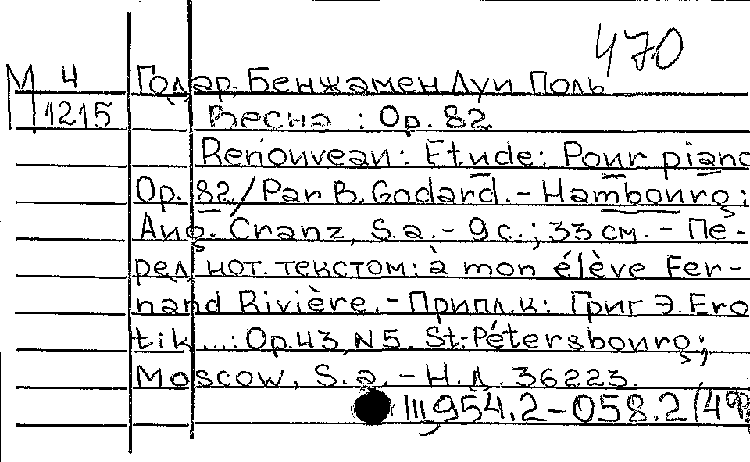 470
М 4 Годар, Бенжамен Луи Поль
1215 Весна : Op. 82
Renouveau: Etude: Pour piano
Op. 82/Par B. Godard. - Hambourg:
Aug. Cranz, S.a. - 9 с.; 33 см. - Пе-
ред нот. текстом: à mon élève Fer-
nand Rivière. - Припл. к: Григ Э. Ero
tik...: Op. 43, N 5. St.-Pétersbourg;
Moscow, S.a. - Н.Д. 36223.
Ш954.2-058.2(4Ф